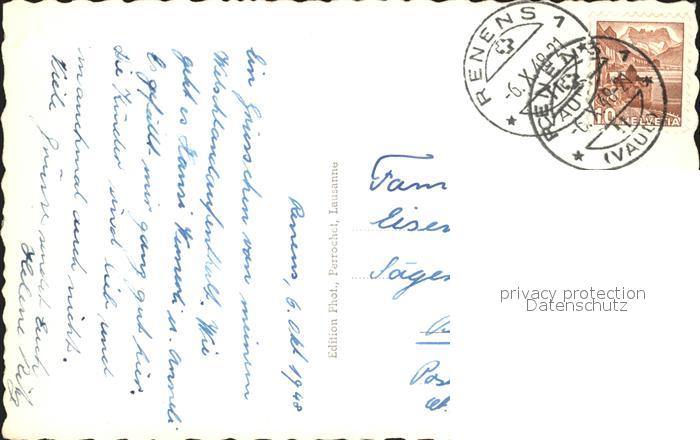 Renens, 6. Okt 1948
Ein Grüsschen von meinem
Welschlandaufenthalt. Wie
geht es Hansi Vreneli u. Anneli.
Es gfällt mir ganz gut hier.
Die Kinder sind lieb und
manchmal auch nicht.
Viele Grüsse sendet Euch
Helene
Edition Phot., Perrochet, Lausanne
Fam
Eisen
Säge
Pos
RENENS 1
-6.X.48-21
(VAUD)
RENENS 1
-6.X.48-21
(VAUD)
10 HELVETIA
privacy protection
Datenschutz